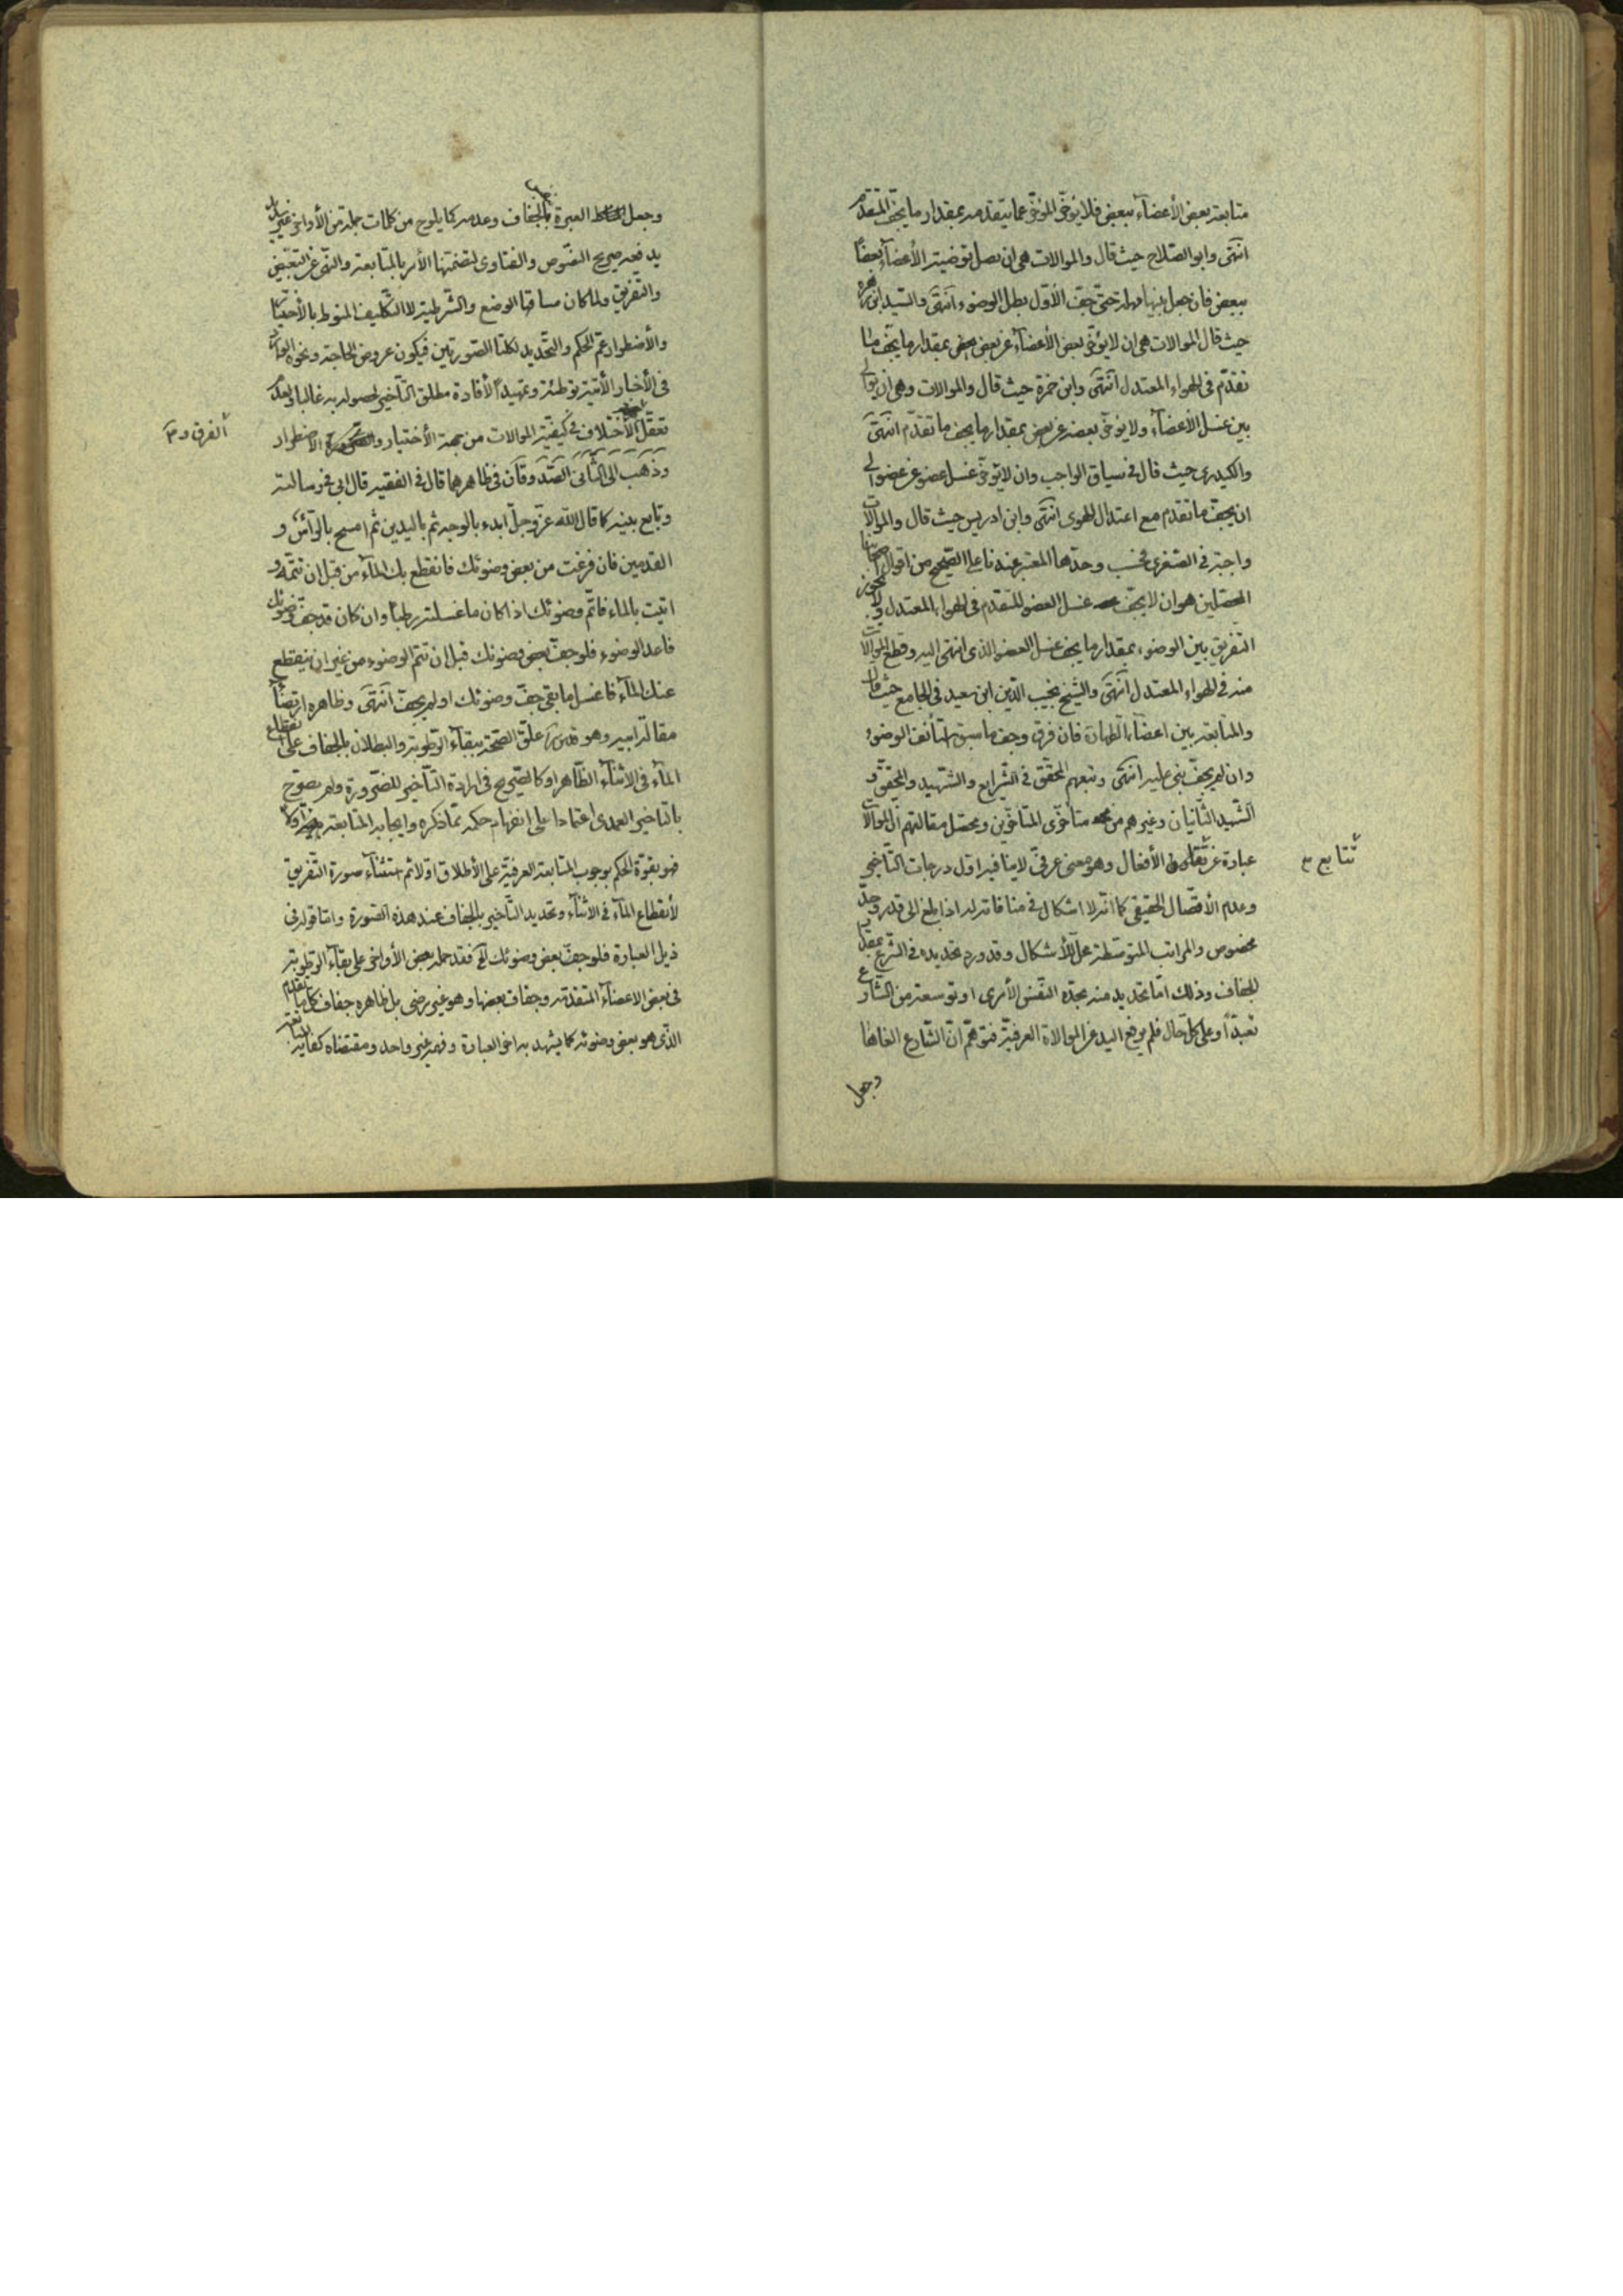 متابعة بعض الأعضاء ببعض فلا يؤخر المؤخر عما يتقدمه بمقدار ما يجف المتقدم
انتهى وابو الصلاح حيث قال والموالات هى ان يصل توضية الأعضاء بعضا
ببعض فان جعل بينها مهلة حتى جف الأول بطل الوضوء انتهى والسيد ابن زهرة
حيث قال الموالات هى ان لا يؤخر بعض الأعضاء عن بعض بمقدار ما يجف ما
تقدم فى الهواء المعتدل انتهى وابن حمزة حيث قال والموالات وهى ان يوالى
بين غسل الأعضاء ولا يؤخر بعضه عن بعض بمقدار ما يجف ما تقدم انتهى
والكيدرى حيث قال فى سياق الواجب وان لا يؤخر غسل عضو عن عضو الى
ان يجف ما تقدم مع اعتدال الهوى انتهى وابن ادريس حيث قال والموالات
واجبة فى الصغرى فحسب وحدها المعتبر عندنا على الصحيح من اقوال اصحابنا
المحصلين هو ان لا يجف غسل العضو المتقدم فى الهواء المعتدل ولا يجوز
التفريق بين الوضوء بمقدار ما يجف غسل العضو الذى انتهى اليه وقطع الموالات
منه فى الهواء المعتدل انتهى والشيخ نجيب الدين ابن سعيد فى الجامع حيث قال
والمتابعة بين اعضاء الطهارة فان فرق وجف ما سبق استأنف الوضوء
وان لم يجف بنى عليه انتهى وتبعهم المحقق فى الشرايع والشهيد والمحقق و
الشهيد الثانيان وغيرهم من متأخرى المتأخرين ومحصل مقالتهم ان الموالات
عبارة عن تتابع الأفعال وهو معنى عرفى لا ينافيه اول درجات التأخير
وعدم الأتصال الحقيقى كما انه لا اشكال فى منافاته له اذا بلغ الى قدر وحد
مخصوص والمراتب المتوسطة محل الأشكال وقد ورد تحديده فى الشرع بمقدار
الجفاف وذلك اما تحديد منه بحده النفس الأمرى او توسعة من الشارع
تعبدا وعلى كل حال فلم يرفع اليد عن الموالاة العرفية فتوهم ان الشارع الغاها
وجعل
تتابع
وجعل العبرة بالجفاف وعدمه كما يلوح من كلمات جملة من الأواخر غير سديد
يدفعه صريح النصوص والفتاوى لتضمنها الأمر بالمتابعة والنهى عن التبعيض
والتفريق ولما كان مساقها الوضع والشرطية لا التكليف المنوط بالأختيار
والأضطرار عم الحكم والتحديد لكلتا الصورتين فيكون عروض الحاجة ونحوه الواقع
فى الأخبار الأتية توطئة وتمهيدا لأفادة مطلق التأخير لحصوله به غالبا ولعدم
تعقل الأختلاف فى كيفية الموالات من جهة الأختيار والأضطرار
الفرق و
وذهب الى الثانى الصدوقان فى ظاهرهما قال فى الفقيه قال ابى فى رسالته
وتابع بينه كما قال الله عز وجل ابدء بالوجه ثم باليدين ثم امسح بالرأس و
القدمين فان فرغت من بعض وضوئك فانقطع بك الماء من قبل ان تتمه و
اتيت بالماء فاتم وضوئك اذا كان ما غسلته رطبا وان كان قد جف وضوئك
فاعد الوضوء فلو جف بعض وضوئك قبل ان تتم الوضوء من غير ان ينقطع
عنك الماء فاغسل ما بقى جف وضوئك او لم يجف انتهى وظاهره ارتضاء
مقالة ابيه وهو علق الصحة ببقاء الرطوبة والبطلان بالجفاف على انقطاع
الماء فى الأثناء الظاهر او كالصريح فى ارادة التأخير للضرورة ولم يصرح
بالتاخير العمدى اعتمادا على انفهام حكمه مما ذكره وايجابه المتابعة اولا
فهو بقوة الحكم بوجوب المتابعة العرفية على الأطلاق اولا ثم استثناء صورة التفريق
لأنقطاع الماء فى الأثناء وتحديد التأخير بالجفاف عند هذه الصورة واما قوله فى
ذيل العبارة فلو جف بعض وضوئك الخ فقد حمله بعض الأواخر على بقاء الرطوبة
فى بعض الاعضاء المتقدمة وجفاف بعضها وهو غير مرضى بل ظاهره جفاف كل ما تقدم
الذى هو بعض وضوئه كما يشهد به اخر العبارة وفهمه غير واحد ومقتضاه كفاية المتابعة